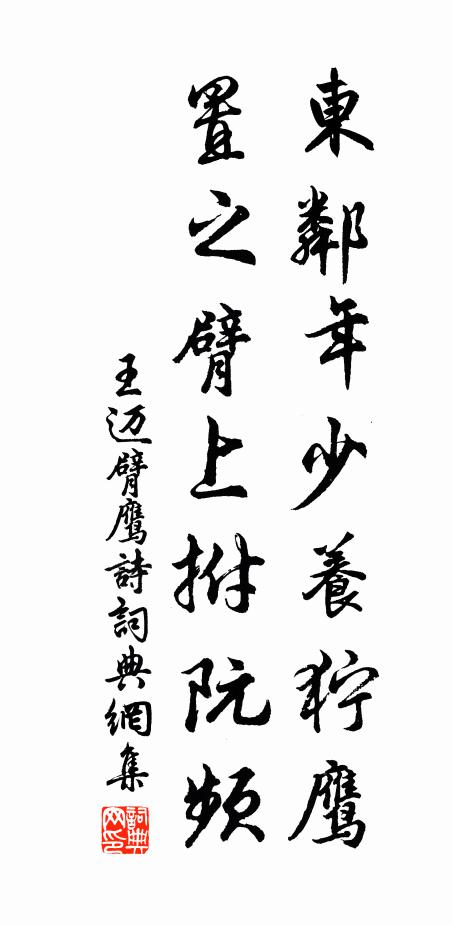 東鄰年少養狞鷹
置之臂上拊阮頻
王迈臂鷹詩詞典網集
詞典网印